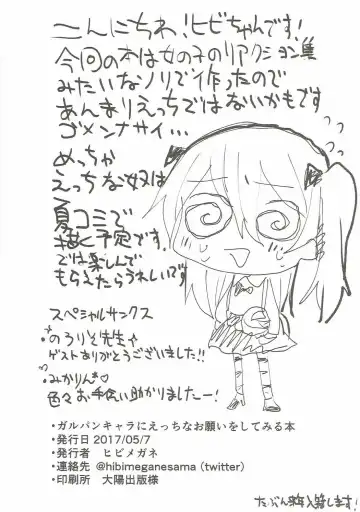 こんにちわ!ヒビちゃんです!
今回の本は女の子のリアクション集
みたいなノリで作ったので
あんまりえっちではないかもです
ゴメンナサイ...
めっちゃ
えっちな奴は
夏コミで
描く予定です。
では楽しんで
もらえたらうれしいです
スペシャルサンクス
・のうりそ先生☆
ゲストありがとうございました!!
・みかりん*♡
色々お手伝い助かりましたー!
・ガルパンキャラにえっちなお願いをしてみる本
・発行日 2017/05/7
・発行者 ヒビメガネ
・連絡先 @hibimeganesama (twitter)
・印刷所 大陽出版様